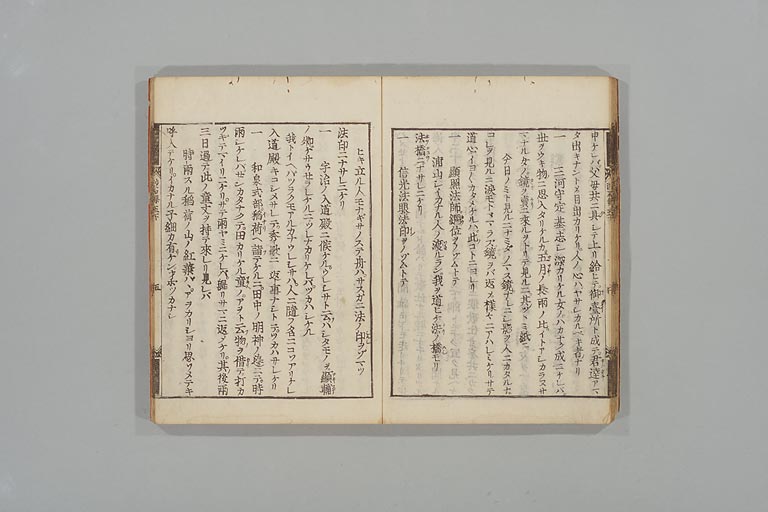 申ケレバ父母共ニ具シテ上リ給ヒテ御臺所ト成テ君達アマ
タ出キナントメ目出カリケリ人ノ心ハヤサシカルヘキ者ナリ
一 三河守定基志シ深カリケル女ノハカナク成ニケレバ
世ヲウキ物ニ思入タリケルニ五月ノ長雨ノ比イトアレカラスサ
マナル女ノ鏡ヲ賣ニ來レルヲトリテ見ルニ其ツヽミ紙ニ
今日ノミト見ルニナミタノマス鏡ナレニシ影ヲ人ニカタルナ
コレヲ見ルニ淚モトヽマラス鏡ヲバ返メ様々ニアハレミケリサテ
道心イヨ〳〵カタメケルハ此コトニヨレリ
一 顯照法師綱位ヲノゾムトテ
浦山シイカナル人ノ渡ルラン我ヲ道ヒケ法ノ橋モリ
法橋ニナサレニケリ
一 信光法眼法印ヲノゾムトテ
ヒキ立ル人モナギサノステ舟ノサスガニ法ノ印ヲゾマツ
法印ニナサレニケリ
一 宇治ノ入道殿ニ候ケルウレシサト云ハシタモノヲ顯輔
ノ卿ケサウセラレケルニツレナカリケレバツカハシケル
我トイヘバツラクモアルカナウレシサハ人ニ隨フ名ニコソアリケレ
入道殿キコシメサレテ秀歌ニ返事ナシトテツカハサレケリ
一 和泉式部稻荷ヘ詣テケルニ田中ノ明神ノ程ニテ時
雨シケレバセンカタナクテ田カリケル童ノアヲト云物ヲ借テ打カ
ツキテマイリニケリサテ雨ヤミニケレバ掘リサマニ返メケリ其後兩
三日過テ此ノ童文ヲ持テ來レリ見レバ
時雨スル稻荷ノ山ノ紅葉バヽアヲカリシヨリ思ソメテキ
呼入テケリイカナル子細カ有ケンオボツカナシ